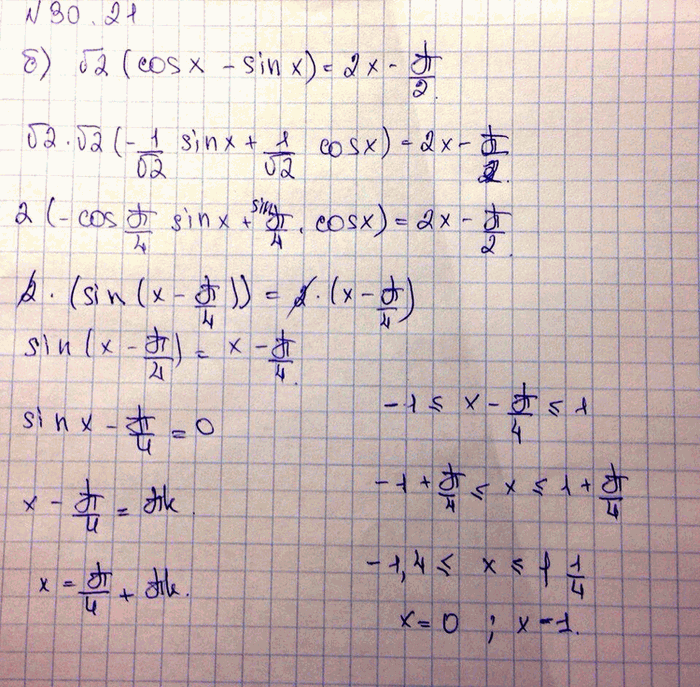 N 30.21
б) √2 (cosx - sin x) = 2x - π/2.
√2·√2 (-1/√2 sinx + 1/√2 cosx) = 2x - π/2.
2 (-cos π/4 sinx + sin π/4 · cosx) = 2x - π/2.
2 · (sin (x - π/4)) = 2 · (x - π/4)
sin (x - π/4) = x - π/4.
sin x - π/4 = 0
x - π/4 = πk.
x = π/4 + πk.
-1 ≤ x - π/4 ≤ 1
-1 + π/4 ≤ x ≤ 1 + π/4
-1,4 ≤ x ≤ 1 1/4
x = 0 ; x = 1.